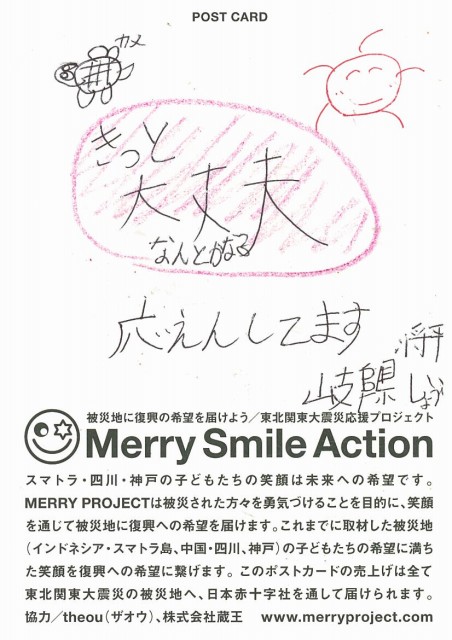 POST CARD
カメ
きっと
大丈夫
なんとかなる
応えんしてます
将平
岐阜県 しょう
被災地に復興の希望を届けよう／東北関東大震災応援プロジェクト
Merry Smile Action
スマトラ・四川・神戸の子どもたちの笑顔は未来への希望です。
MERRY PROJECTは被災された方々を勇気づけることを目的に、笑顔
を通じて被災地に復興への希望を届けます。これまでに取材した被災地
（インドネシア・スマトラ島、中国・四川、神戸）の子どもたちの希望に満ち
た笑顔を復興への希望に繋げます。このポストカードの売上げは全て
東北関東大震災の被災地へ、日本赤十字社を通して届けられます。
協力／theou（ザオウ）、株式会社蔵王 www.merryproject.com